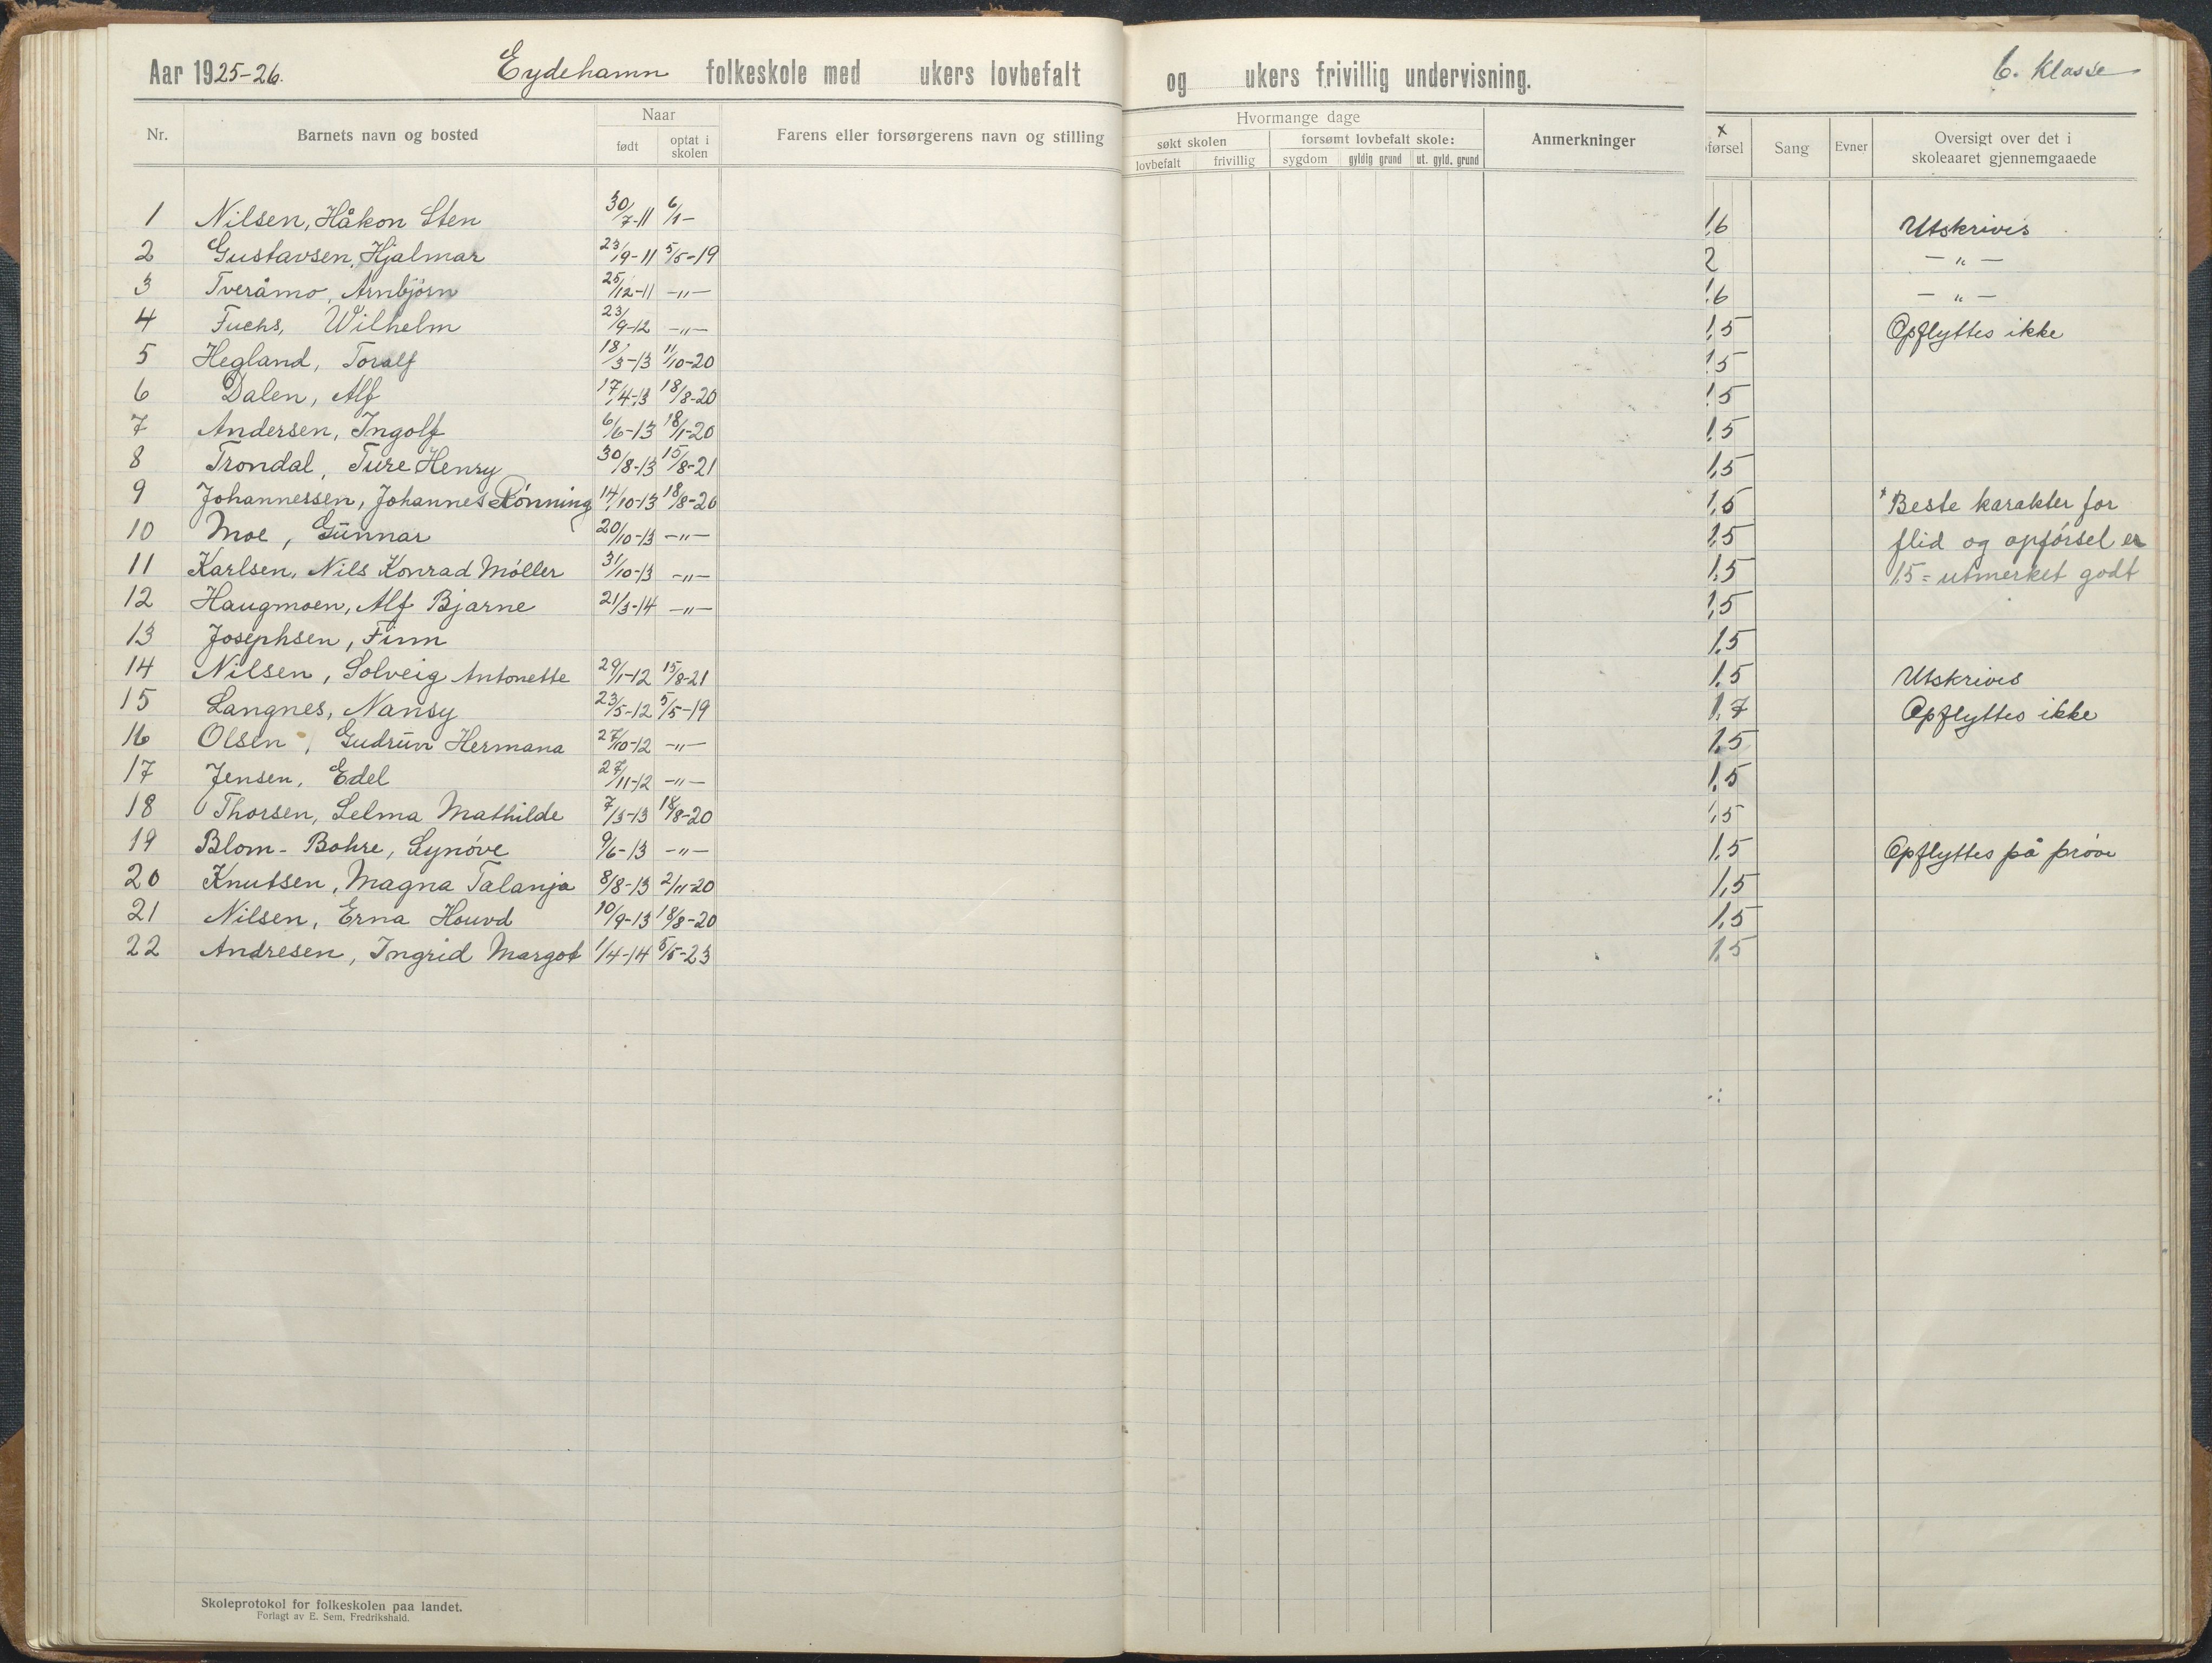 Aar 1925-26. Eydehamn folkeskole med ukers lovbefalt og ukers frivillig undervisning. 6. klasse
Nr. Barnets navn og bosted Naar født optat i skolen Farens eller forsørgerens navn og stilling Hvormange dage søkt skolen lovbefalt frivillig forsømt lovbefalt skole: sygdom gyldig grund ut. gyld. grund Anmerkninger x førsel Sang Evner Oversigt over det i skoleaaret gjennemgaaede
1 Nilsen, Håkon Sten 30/7-11 6/1- 1,6 Utskrives
2 Gustavsen, Hjalmar 23/9-11 5/5-19 2 -"-
3 Tveråmo, Arnbjørn 25/12-11 -"- 1,6 -"-
4 Fuchs, Wilhelm 23/9-12 -"- 1,5 Opflyttes ikke
5 Hegland, Toralf 18/3-13 11/10-20 1,5
6 Dalen, Alf 17/4-13 18/8-20 1,5
7 Andersen, Ingolf 6/6-13 18/1-20 1,5
8 Trondal, Ture Henry 30/8-13 15/8-21 1,5
9 Johannessen, Johannes Rønning 14/10-13 18/8-20 1,5 x Beste karakter for
10 Moe, Gunnar 20/10-13 -"- 1,5 flid og opførsel er
11 Karlsen, Nils Konrad Møller 31/10-13 -"- 1,5 1,5 = utmerket godt
12 Haugmoen, Alf Bjarne 21/3-14 -"- 1,5
13 Josephsen, Finn 1,5
14 Nilsen, Solveig Antonette 29/1-12 15/8-21 1,5 Utskrives
15 Langnes, Nansy 23/5-12 5/5-19 1,7 Opflyttes ikke
16 Olsen, Gudrun Hermana 27/10-12 -"- 1,5
17 Jensen, Edel 27/11-12 -"- 1,5
18 Thorsen, Selma Mathilde 7/3-13 18/8-20 1,5
19 Blom-Bohre, Synøve 9/6-13 -"- 1,5 Opflyttes på prøve
20 Knutsen, Magna Talanja 8/8-13 2/11-20 1,5
21 Nilsen, Erna Houvd 10/9-13 18/8-20 1,5
22 Andresen, Ingrid Margot 1/4-14 5/5-23 1,5
Skoleprotokol for folkeskolen paa landet.
Forlagt av E. Sem, Fredrikshald.